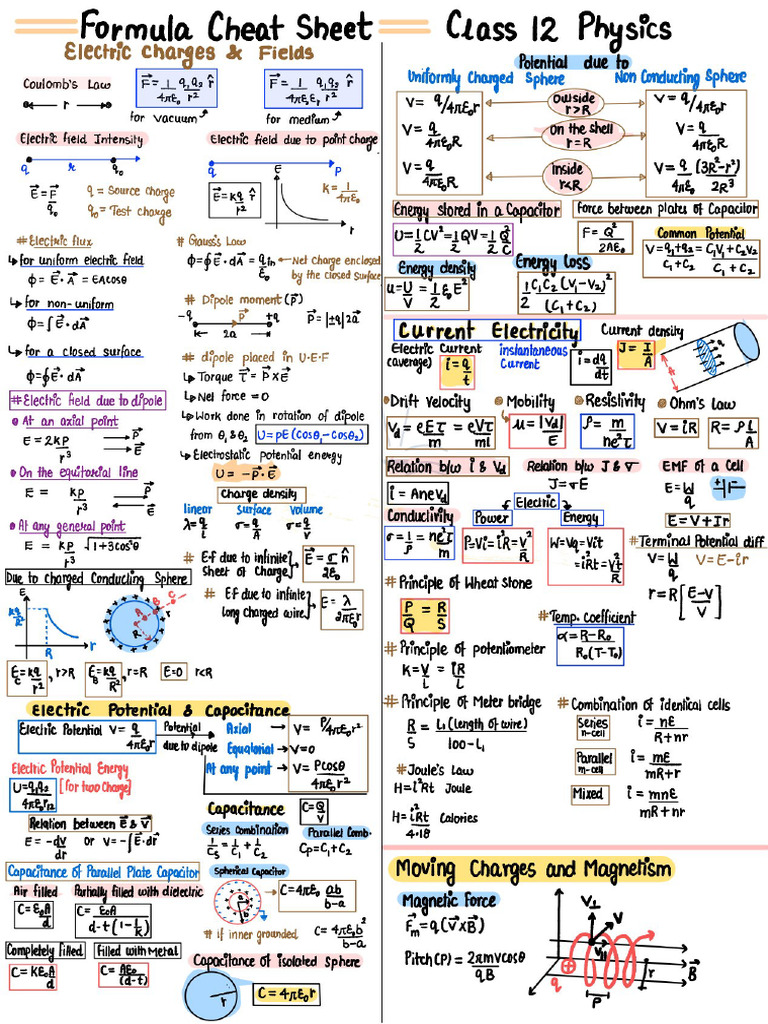 Formula Cheat Sheet Class 12 Physics
Electric Charges & Fields
Coulomb's Law
r
F⃗ = 1/4πε₀ q₁q₂/r² r̂
for vacuum
F⃗ = 1/4πε₀εr q₁q₂/r² r̂
for medium
Electric field Intensity
q r q₀
E⃗ = F⃗/q₀
q = Source charge
q₀ = Test charge
Electric field due to point charge
q P
E⃗ = kq/r² r̂
E
r
K = 1/4πε₀
# Electric flux
↳ for uniform electric field
ϕ = E⃗ · A⃗ = EAcosθ
↳ for non-uniform
ϕ = ∫E⃗ · dA⃗
↳ for a closed surface
ϕ = ∮E⃗ · dA⃗
# Gauss's Law
ϕ = ∮E⃗ · dA⃗ = qin/ε₀ ← Net Charge enclosed by the closed Surface
# Dipole moment (P⃗)
-q P⃗ +q
2a
|P⃗| = |±q|2a
# dipole placed in U·E·F
↳ Torque τ⃗ = P⃗ × E⃗
↳ Net force = 0
↳ Work done in rotation of dipole
from θ₁ & θ₂ U = pE(cosθ₁ - cosθ₂)
↳ Electrostatic potential energy
U = -P⃗ · E⃗
# Electric field due to dipole
At an axial point
E = 2kp/r³
P⃗
E⃗
On the equitorial line
E = kp/r³
P⃗
E⃗
At any general point
E = kp/r³ √1+3cos²θ
Charge density
linear Surface volume
λ = q/L σ = q/A σ = q/V
# E·f due to infinite sheet of Charge
E⃗ = σ/2ε₀ n̂
# E·f due to infinite long charged wire
E = λ/2πε₀r
Due to charged Conducting Sphere
E
kq/R²
R r
A B C
R
EC = kq/r², r>R
EB = kq/R², r=R
E=0 r<R
Electric Potential & Capacitance
Electric Potential V = q/4πε₀r
Potential due to dipole
Axial → V = P/4πε₀r²
Equatorial → V=0
At any point → V = Pcosθ/4πε₀r²
Electric Potential Energy
U = q₁q₂/4πε₀r₁₂ [for two Charge]
Relation between E⃗ & V⃗
E = -dV/dr or V = -∫E⃗·dr⃗
Capacitance C = Q/V
Series Combination
1/CS = 1/C₁ + 1/C₂
Parallel Comb·
CP = C₁ + C₂
Capacitance of Parallel Plate Capacitor
Air filled
C = ε₀A/d
Partially filled with dielectric
C = ε₀A/d-t(1-1/K)
Completely filled
C = Kε₀A/d
Filled with Metal
C = Aε₀/(d-t)
Spherical Capacitor
a
b
C = 4πε₀ ab/b-a
# if inner grounded
C = 4πε₀b²/b-a
Capacitance of isolated Sphere
r
C = 4πε₀r
Potential due to
Uniformly Charged Sphere Non Conducting Sphere
V = q/4πε₀r Outside r>R V = q/4πε₀r
V = q/4πε₀R On the shell r=R V = q/4πε₀R
V = q/4πε₀R Inside r<R V = q/4πε₀ (3R²-r²)/2R³
Energy stored in a Capacitor
U = 1/2 CV² = 1/2 QV = 1/2 Q²/C
Force between plates of Capacitor
F = Q²/2Aε₀
Common Potential
V = q₁+q₂/C₁+C₂ = C₁V₁+C₂V₂/C₁+C₂
Energy density
u = U/V = 1/2 ε₀E²
Energy loss
1/2 C₁C₂(V₁-V₂)²/(C₁+C₂)
Current Electricity
Electric Current (average)
i = q/t
instantaneous Current
i = dq/dt
Current density
J = I/A
A
Drift Velocity
Vd = eEτ/m = eVτ/ml
Mobility
μ = |Vd|/E
Resistivity
ρ = m/ne²τ
Ohm's Law
V = iR R = ρl/A
Relation b/w i & Vd
i = AneVd
Relation b/w J & σ
J = σE
EMF of a Cell
E = W/q
E = V+Ir
Conductivity
σ = 1/ρ = ne²τ/m
Electric
Power
P = Vi = i²R = V²/R
Energy
W = Vq = Vit
= i²Rt = V²t/R
# Terminal Potential diff
V = W/q V = E-ir
r = R[E-V/V]
# Principle of Wheat Stone
P/Q = R/S
# Temp. Coefficient
α = R-R₀/R₀(T-T₀)
# Principle of potentiometer
K = V/L = iR/L
# Principle of Meter bridge
R/S = L₁(length of wire)/100-L₁
# Combination of identical cells
Series n-cell i = nE/R+nr
Parallel m-cell i = mE/mR+r
Mixed i = mnE/mR+nr
# Joule's Law
H = i²Rt Joule
H = i²Rt/4·18 Calories
Moving Charges and Magnetism
Magnetic Force
F⃗m = q(V⃗×B⃗)
Pitch(P) = 2πmvcosθ/qB
V⊥
V
V||
q
P
r
B⃗